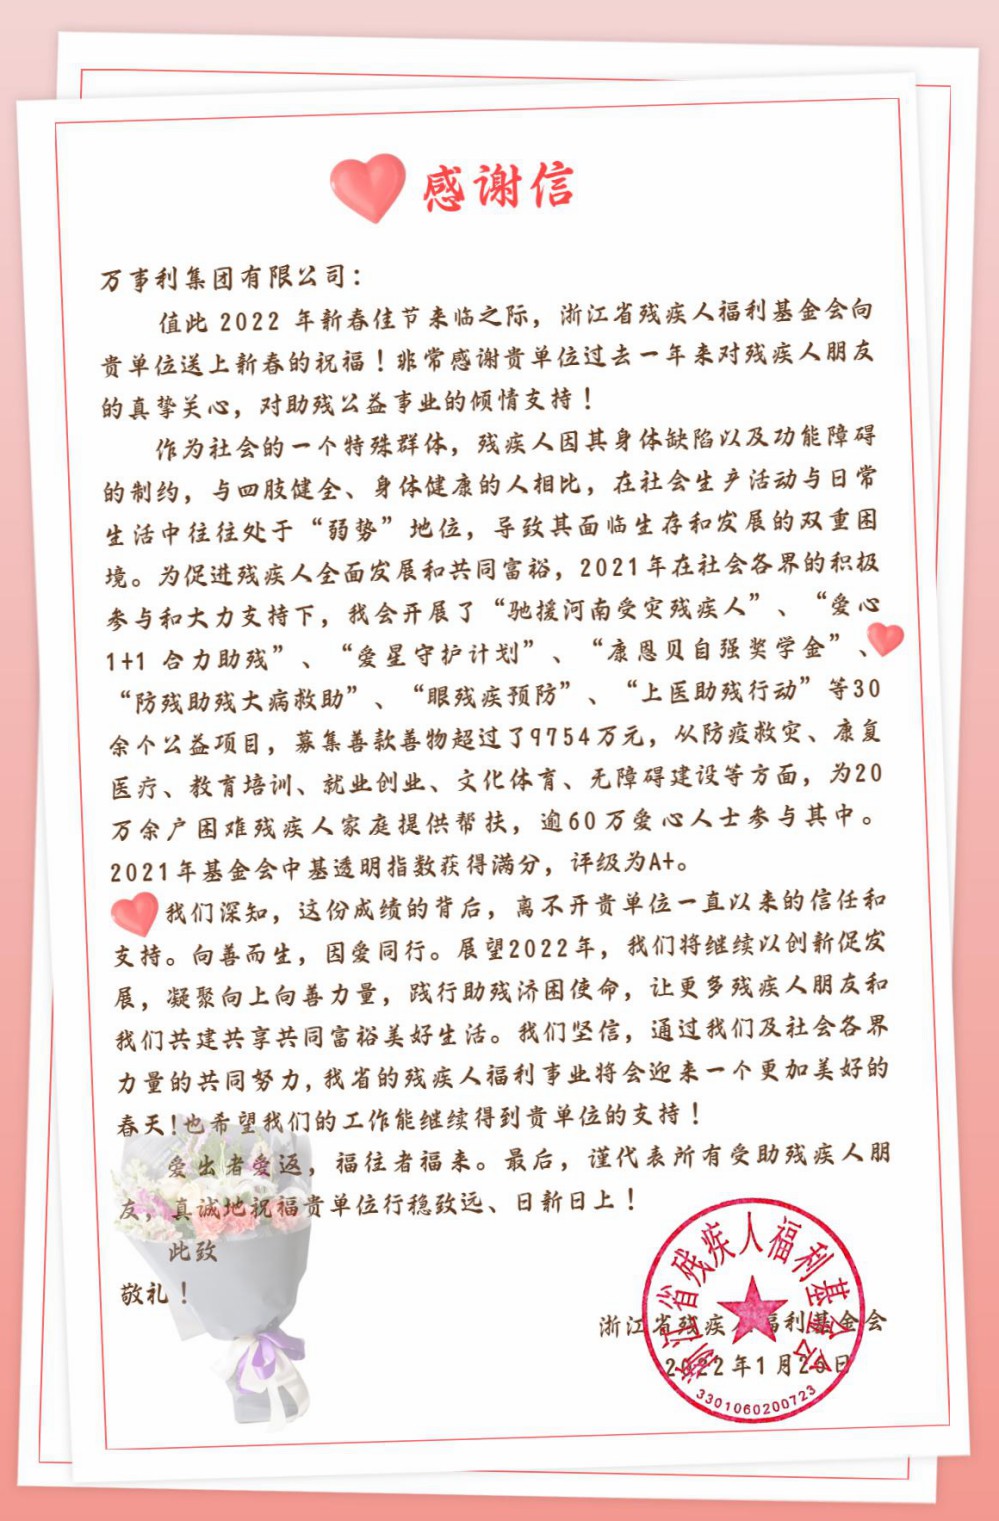 感谢信
万事利集团有限公司：
值此 2022 年新春佳节来临之际，浙江省残疾人福利基金会向
贵单位送上新春的祝福！非常感谢贵单位过去一年来对残疾人朋友
的真挚关心，对助残公益事业的倾情支持！
作为社会的一个特殊群体，残疾人因其身体缺陷以及功能障碍
的制约，与四肢健全、身体健康的人相比，在社会生产活动与日常
生活中往往处于“弱势”地位，导致其面临生存和发展的双重困
境。为促进残疾人全面发展和共同富裕，2021年在社会各界的积极
参与和大力支持下，我会开展了“驰援河南受灾残疾人”、“爱心
1+1 合力助残”、“爱星守护计划”、“康恩贝自强奖学金”、
“防残助残大病救助”、“眼残疾预防”、“上医助残行动”等30
余个公益项目，募集善款善物超过了9754万元，从防疫救灾、康复
医疗、教育培训、就业创业、文化体育、无障碍建设等方面，为20
万余户困难残疾人家庭提供帮扶，逾60万爱心人士参与其中。
2021年基金会中基透明指数获得满分，评级为A+。
我们深知，这份成绩的背后，离不开贵单位一直以来的信任和
支持。向善而生，因爱同行。展望2022年，我们将继续以创新促发
展，凝聚向上向善力量，践行助残济困使命，让更多残疾人朋友和
我们共建共享共同富裕美好生活。我们坚信，通过我们及社会各界
力量的共同努力，我省的残疾人福利事业将会迎来一个更加美好的
春天!也希望我们的工作能继续得到贵单位的支持！
爱出者爱返，福往者福来。最后，谨代表所有受助残疾人朋
友，真诚地祝福贵单位行稳致远、日新日上！
此致
敬礼！
浙江省残疾人福利基金会
2022年1月20日
浙江省残疾人福利基金会
3301060200723